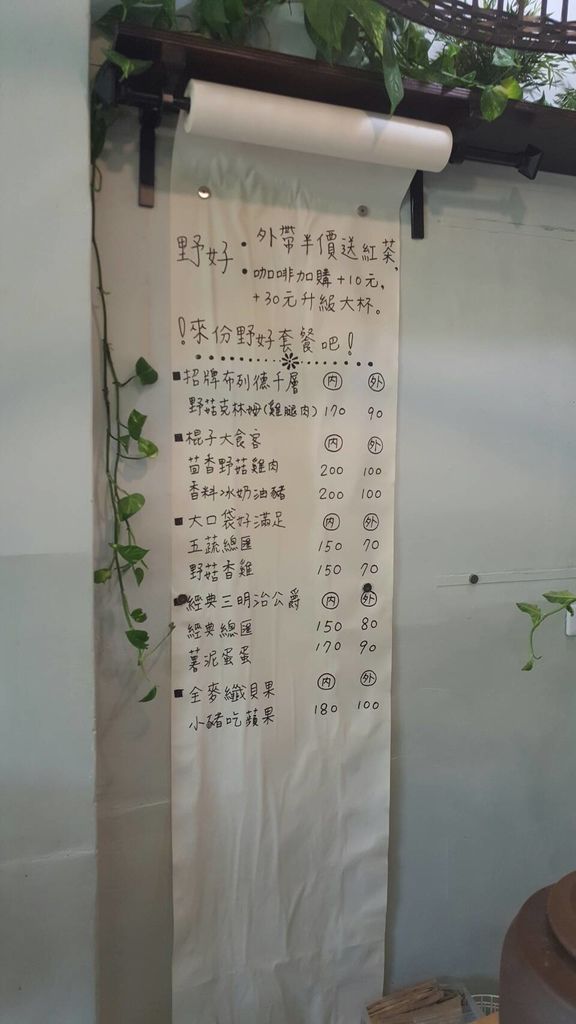 野好：•外帶半價送紅茶,
•咖啡加購+10元,
+30元升級大杯。
!來份野好套餐吧!
■招牌布列德千層 內 外
野菇克林姆(雞腿肉) 170 90
■棍子大食客 內 外
茴香野菇雞肉 200 100
香料冰奶油豬 200 100
■大口袋好滿足 內 外
五蔬總匯 150 70
野菇香雞 150 70
■經典三明治公爵 內 外
經典總匯 150 80
薯泥蛋蛋 170 90
■全麥纖貝果 內 外
小豬吃蘋果 180 100